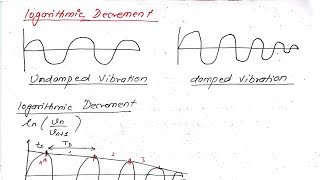 logarithmic Decrement
Undamped Vibration
damped Vibration
logarithmic Decrement
ln (Un/Un+1)
t1 TD
1 2 3